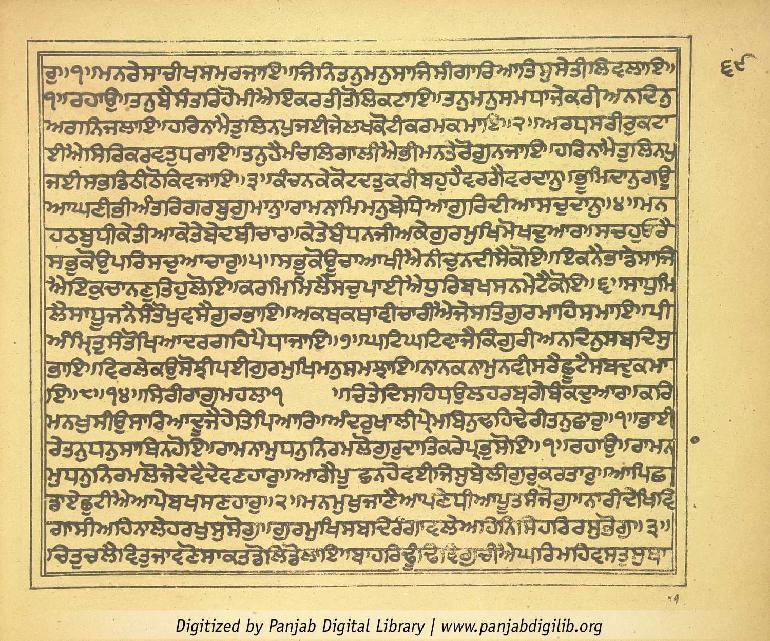 ੬੯
ਭੁ॥੧॥ਮਨਰੇਸਾਚੀਖਸਮਰਜਾਇ॥ਜਿਨਿਤਨੁਮਨੁਸਾਜਿਸੀਗਾਰਿਆਤਿਸੁਸੇਤੀਲਿਵਲਾਇ॥
੧॥ਰਹਾਉ॥ਤਨੁਬੈਸੰਤਰਿਹੋਮੀਐਇਕਰਤੀਤੋਲਿਕਟਾਇ॥ਤਨੁਮਨੁਸਮਧਾਜੇਕਰੀਅਨਦਿਨੁ
ਅਗਨਿਜਲਾਇ॥ਹਰਿਨਾਮੈਤੁਲਿਨਪੁਜਈਜੇਲਖਕੋਟੀਕਰਮਕਮਾਇ॥੨॥ਅਰਧਸਰੀਰੁਕਟਾ
ਈਐਸਿਰਿਕਰਵਤੁਧਰਾਇ॥ਤਨੁਹੈਮੰਚਲਿਗਾਲੀਐਭੀਮਨਤੇਰੋਗੁਨਜਾਇ॥ਹਰਿਨਾਮੈਤੁਲਿਨਪੁ
ਜਈਸਭਡਿਠੀਠੋਕਿਵਜਾਇ॥੩॥ਕੰਚਨਕੇਕੋਟਦਤੁਕਰੀਬਹੁਹੈਵਰਗੈਵਰਦਾਨੁ॥ਭੂਮਿਦਾਨੁਗਊ
ਆਘਣੀਭੀਅੰਤਰਿਗਰਬੁਗੁਮਾਨੁ॥ਰਾਮਨਾਮਿਮਨੁਬੇਧਿਆਗੁਰਿਦੀਆਸਚੁਦਾਨੁ॥੪॥ਮਨ
ਹਠਬੁਧੀਕੇਤੀਆਕੇਤੇਬੇਦਬੀਚਾਰ॥ਕੇਤੇਬੰਧਨਜੀਅਕੇਗੁਰਮੁਖਿਮੋਖਦੁਆਰ॥ਸਚਹੁਓਰੈ
ਸਭੁਕੋਉਪਰਿਸਚੁਆਚਾਰੁ॥੫॥ਸਭੁਕੋਊਚਾਆਖੀਐਨੀਚੁਨਦੀਸੈਕੋਇ॥ਇਕਨੈਭਾਂਡੇਸਾਜਿ
ਐਇਕੁਚਾਨਣੁਤਿਹੁਲੋਇ॥ਕਰਮਿਮਿਲੈਸਚੁਪਾਈਐਧੁਰਿਬਖਸਨਮੇਟੈਕੋਇ॥੬॥ਸਾਧੁਮਿ
ਲੈਸਾਧੂਜਨੈਸੰਤੋਖੁਵਸੈਗੁਰਭਾਇ॥ਅਕਥਕਥਾਵੀਚਾਰੀਐਜੇਸਤਿਗੁਰਮਾਹਿਸਮਾਇ॥ਪੀ
ਅੰਮ੍ਰਿਤੁਸੰਤੋਖਿਆਦਰਗਹਿਪੈਧਾਜਾਇ॥੭॥ਘਟਿਘਟਿਵਾਜੈਕਿੰਗੁਰੀਅਨਦਿਨੁਸਬਦਿਸੁ
ਭਾਇ॥ਵਿਰਲੇਕਉਸੋਝੀਪਈਗੁਰਮੁਖਿਮਨੁਸਮਝਾਇ॥ਨਾਨਕਨਾਮੁਨਵੀਸਰੈਛੂਟੈਸਬਦੁਕਮਾ
ਇ॥੮॥੧੪॥ਸਿਰੀਰਾਗੁਮਹਲਾ੧ ॥ਚਿਤੇਦਿਸਹਿਧਉਲਹਰਬਗੇਬੰਕਦੁਆਰ॥ਕਰਿ
ਮਨਖੁਸੀਉਸਾਰਿਆਦੂਜੈਹੇਤਿਪਿਆਰਿ॥ਅੰਦਰੁਖਾਲੀਪ੍ਰੇਮਬਿਨੁਢਹਿਢੇਰੀਤਨੁਛਾਰੁ॥੧॥ਭਾਈ
ਰੇਤਨੁਧਨੁਸਾਥਿਨਹੋਇ॥ਰਾਮਨਾਮੁਧਨੁਨਿਰਮਲੋਗੁਰੁਦਾਤਿਕਰੇਪ੍ਰਭੁਸੋਇ॥੧॥ਰਹਾਉ॥ਰਾਮਨਾ
ਮੁਧਨੁਨਿਰਮਲੋਜੇਦੇਵੈਦੇਵਣਹਾਰੁ॥ਆਗੈਪੂਛਨਹੋਵਈਜਿਸੁਬੇਲੀਗੁਰੁਕਰਤਾਰੁ॥ਆਪਿਛ
ਡਾਏਛੁਟੀਐਆਪੇਬਖਸਣਹਾਰੁ॥੨॥ਮਨਮੁਖੁਜਾਣੈਆਪਣੇਧੀਆਪੂਤਸੰਜੋਗੁ॥ਨਾਰੀਦੇਖਿਵਿ
ਗਾਸੀਅਹਿਨਾਲੇਹਰਖੁਸੁਸੋਗੁ॥ਗੁਰਮੁਖਿਸਬਦਿਰੰਗਾਵਲੇਅਹਿਨਿਸਿਹਰਿਰਸੁਭੋਗੁ॥੩॥
ਚਿਤੁਚਲੈਵਿਤੁਜਾਵਣੋਸਾਕਤਡੋਲਿਡੋਲਾਇ॥ਬਾਹਰਿਢੂੰਢਿਵਿਗੁਚੀਐਘਰਮਹਿਵਸਤੁਸੁਥਾ
Digitized by Panjab Digital Library | www.panjabdigilib.org